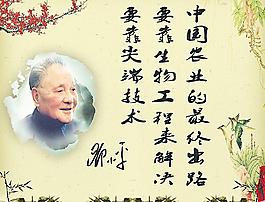 中国农业的最终出路
要靠生物工程来解决
要靠尖端技术
邓小平